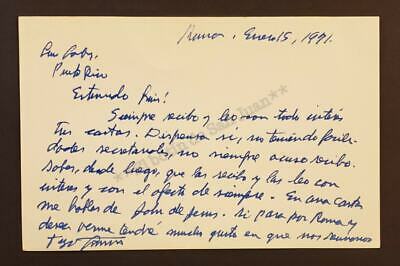 Roma, Enero 15, 1971.
Puerto Rico
Estimado Luis:
Siempre recibo y leo con todo interés
tus cartas. Dispensa si, no teniendo facili-
dades secretariales, no siempre acuso recibo.
Sabes, desde luego, que las recibo y las leo con
interés y con el afecto de siempre. En una carta
me hablas de John de Jesus. Si pasa por Roma y
desea verme tendré mucho gusto en que nos reunamos
San Juan**